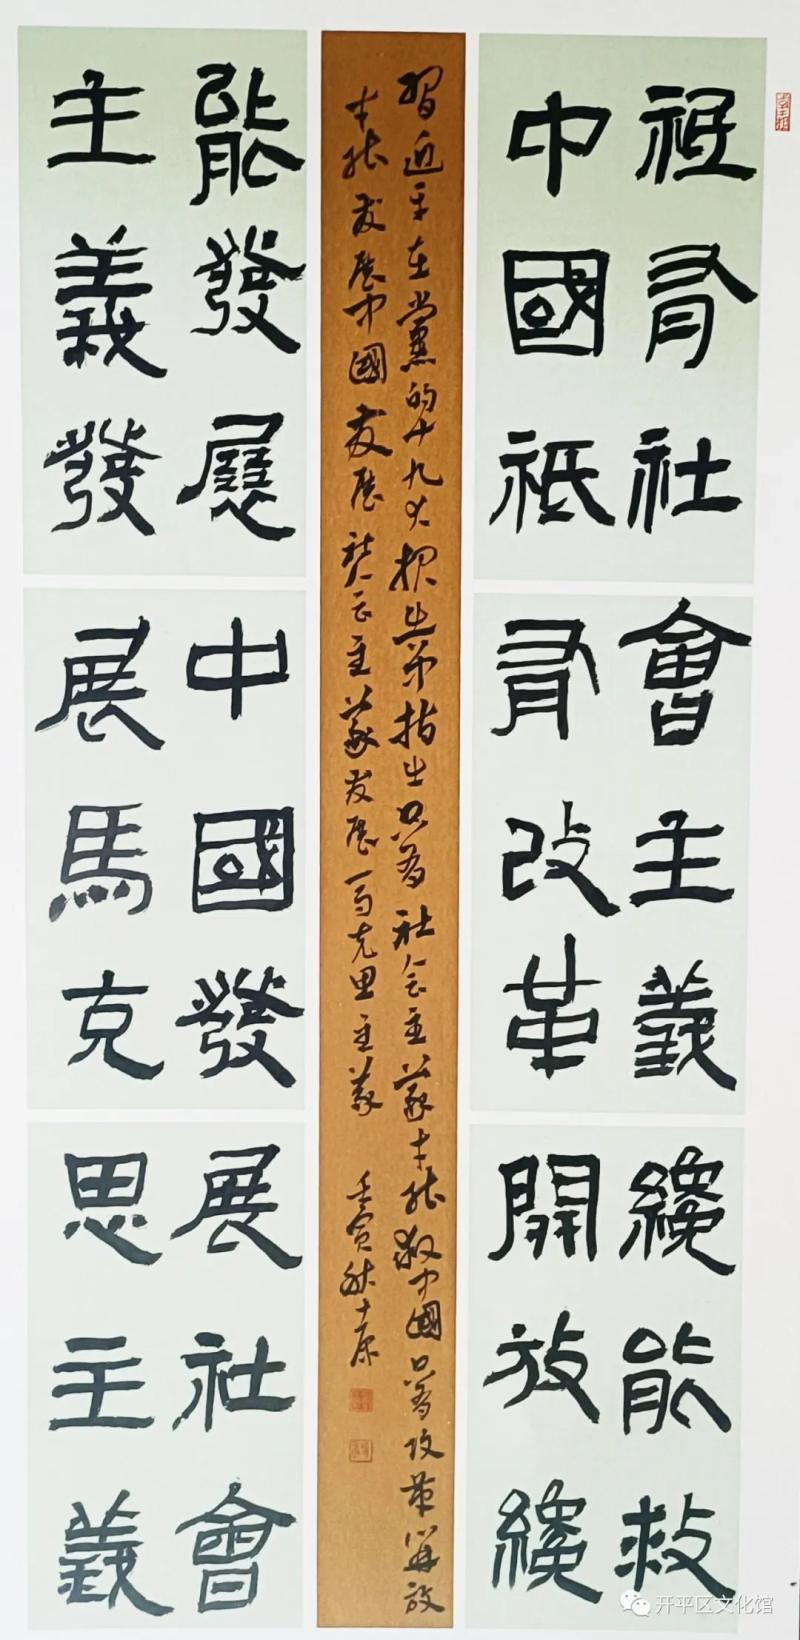 祇有社會主義纔能救
中國祇有改革開放纔
習近平在黨的十九大报告指出只有社会主義才能救中國只有改革開放
才能发展中國发展社会主義发展马克思主義 壬寅秋
能發展中國發展社會
主義發展馬克思主義
开平区文化馆